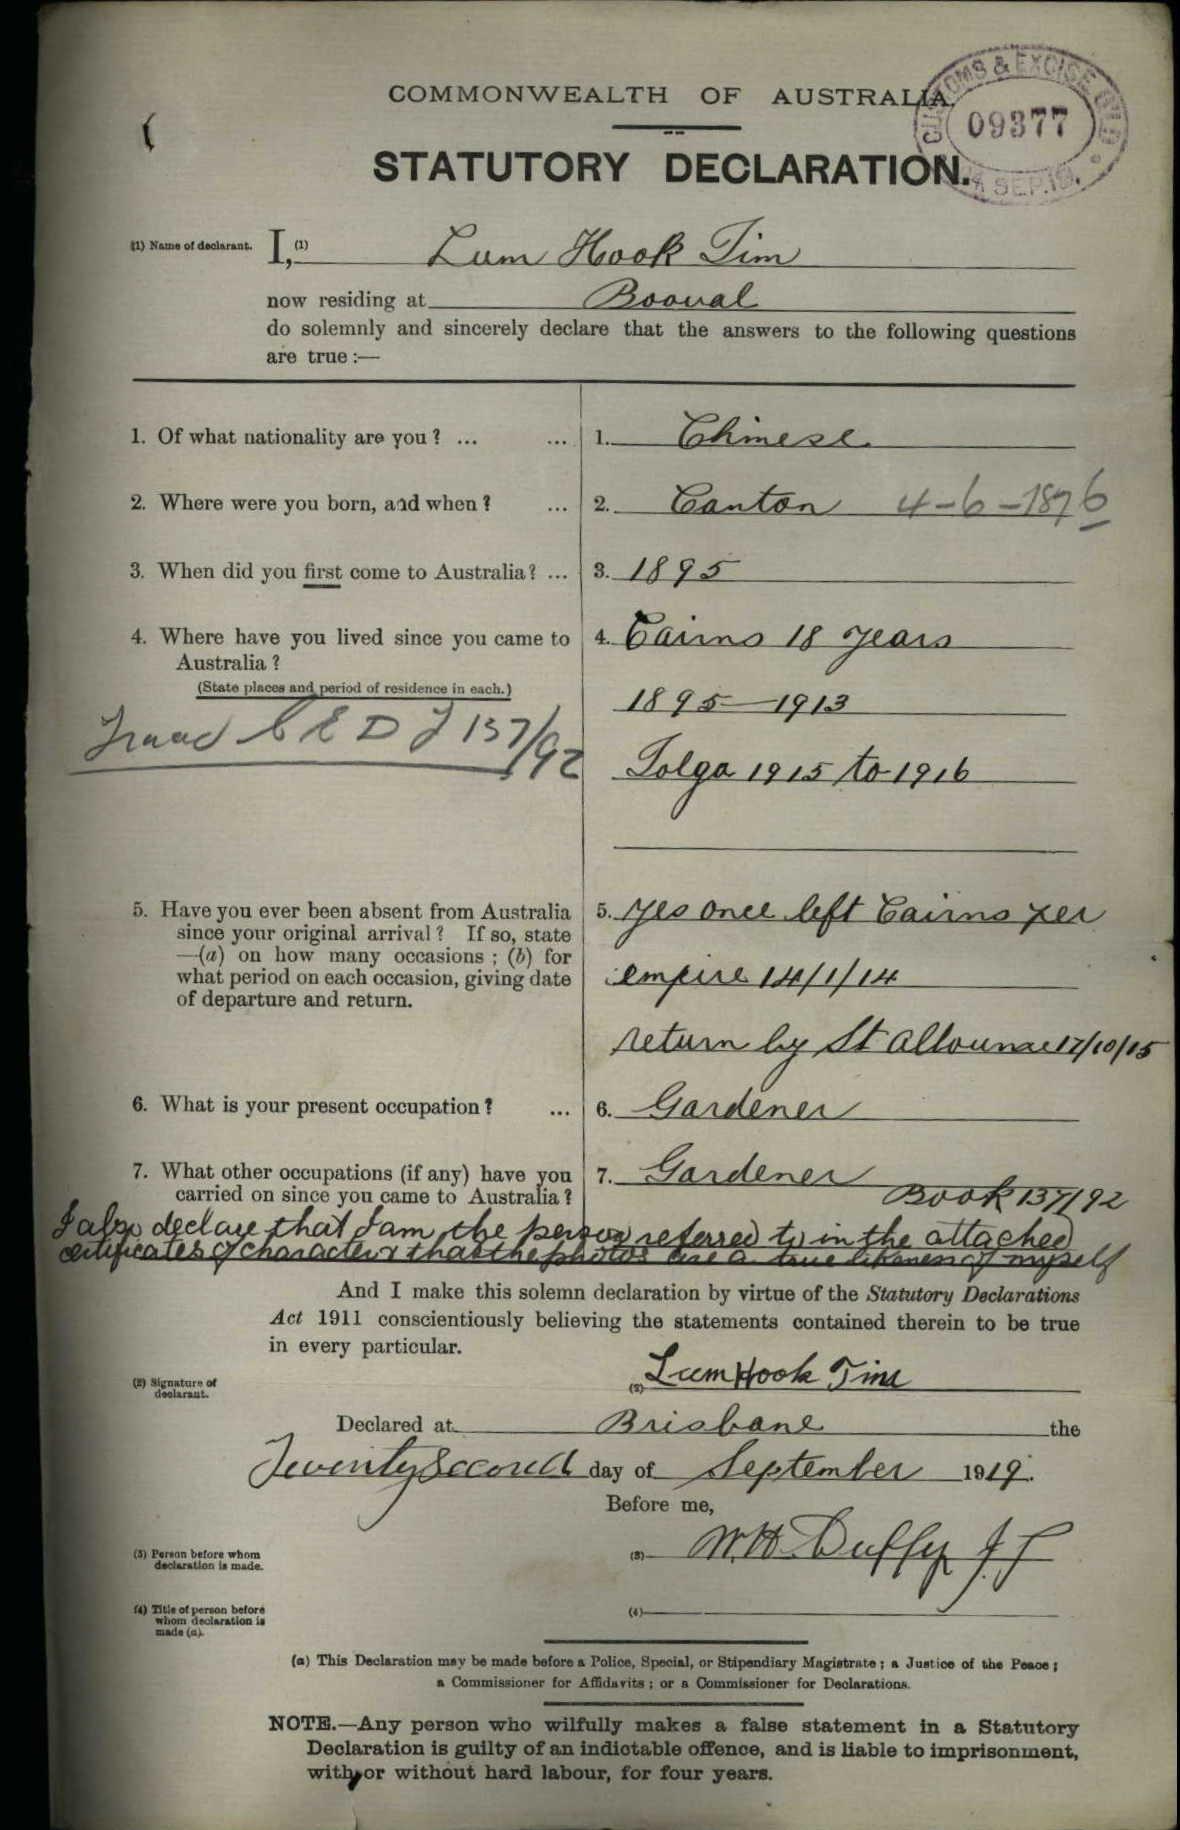 COMMONWEALTH OF AUSTRALIA.
CUSTOMS & EXCISE QLD
09377
SEP.19
STATUTORY DECLARATION.
(1) Name of declarant. I,(1) Lum Hook Tim
now residing at Booval
do solemnly and sincerely declare that the answers to the following questions
are true :—
1. Of what nationality are you ? ... ... 1. Chinese.
2. Where were you born, and when ? ... 2. Canton 4-6-1876
3. When did you first come to Australia? ... 3. 1895
4. Where have you lived since you came to 4. Cairns 18 years
Australia ?
(State places and period of residence in each.)
1895—1913
C E D T 137/92
Tolga 1915 to 1916
5. Have you ever been absent from Australia 5. yes once left Cairns per
since your original arrival ? If so, state
—(a) on how many occasions ; (b) for
what period on each occasion, giving date empire 14/1/14
of departure and return.
return by St 17/10/15
6. What is your present occupation ? ... 6. Gardener
7. What other occupations (if any) have you 7. Gardener
carried on since you came to Australia ? Book 137/92
I also declare that I am the person referred to in the attached
certificates of character & that the photos are a true likeness of myself
And I make this solemn declaration by virtue of the Statutory Declarations
Act 1911 conscientiously believing the statements contained therein to be true
in every particular.
(2) Signature of
declarant.
(2) Lum Hook Tim
Declared at Brisbane the
Twenty Second day of September 1919.
Before me,
(3) Person before whom
declaration is made.
(3) W.H. Duffy J.P
(4) Title of person before
whom declaration is
made (a).
(4)
(a) This Declaration may be made before a Police, Special, or Stipendiary Magistrate ; a Justice of the Peace ;
a Commissioner for Affidavits ; or a Commissioner for Declarations.
NOTE.—Any person who wilfully makes a false statement in a Statutory
Declaration is guilty of an indictable offence, and is liable to imprisonment,
with or without hard labour, for four years.